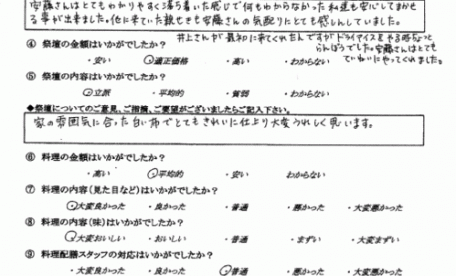 安藤さんはとてもわかりやすく落ち着いた感じで何もわからなかった私達も安心してまかせ
る事が出来ました。他に来ていた親せきも安藤さんの気配りにとても感しんしていました。
④ 祭壇の金額はいかがでしたか?
井上さんが最初に来てくれたんですがドライアイスをやる時ちょっと
らんぼうでした。安藤さんはとても
ていねいにやってくれました。
・安い ・適正価格 ・高い ・わからない
⑤ 祭壇の内容はいかがでしたか?
・立派 ・平均的 ・貧弱 ・わからない
◆祭壇についてのご意見、ご指摘、ご要望がございましたらご記入下さい。
家の雰囲気に合った白い布でとてもきれいに仕上り大変うれしく思います。
⑥ 料理の金額はいかがでしたか?
・高い ・平均的 ・安い わからない
⑦ 料理の内容(見た目など)はいかがでしたか?
・大変良かった ・良かった ・普通 ・悪かった ・大変悪かった
⑧ 料理の内容(味)はいかがでしたか?
・大変おいしい ・おいしい ・普通 ・まずい ・大変まずい
⑨ 料理配膳スタッフの対応はいかがでしたか?
・大変良かった ・良かった ・普通 ・悪かった ・大変悪かった